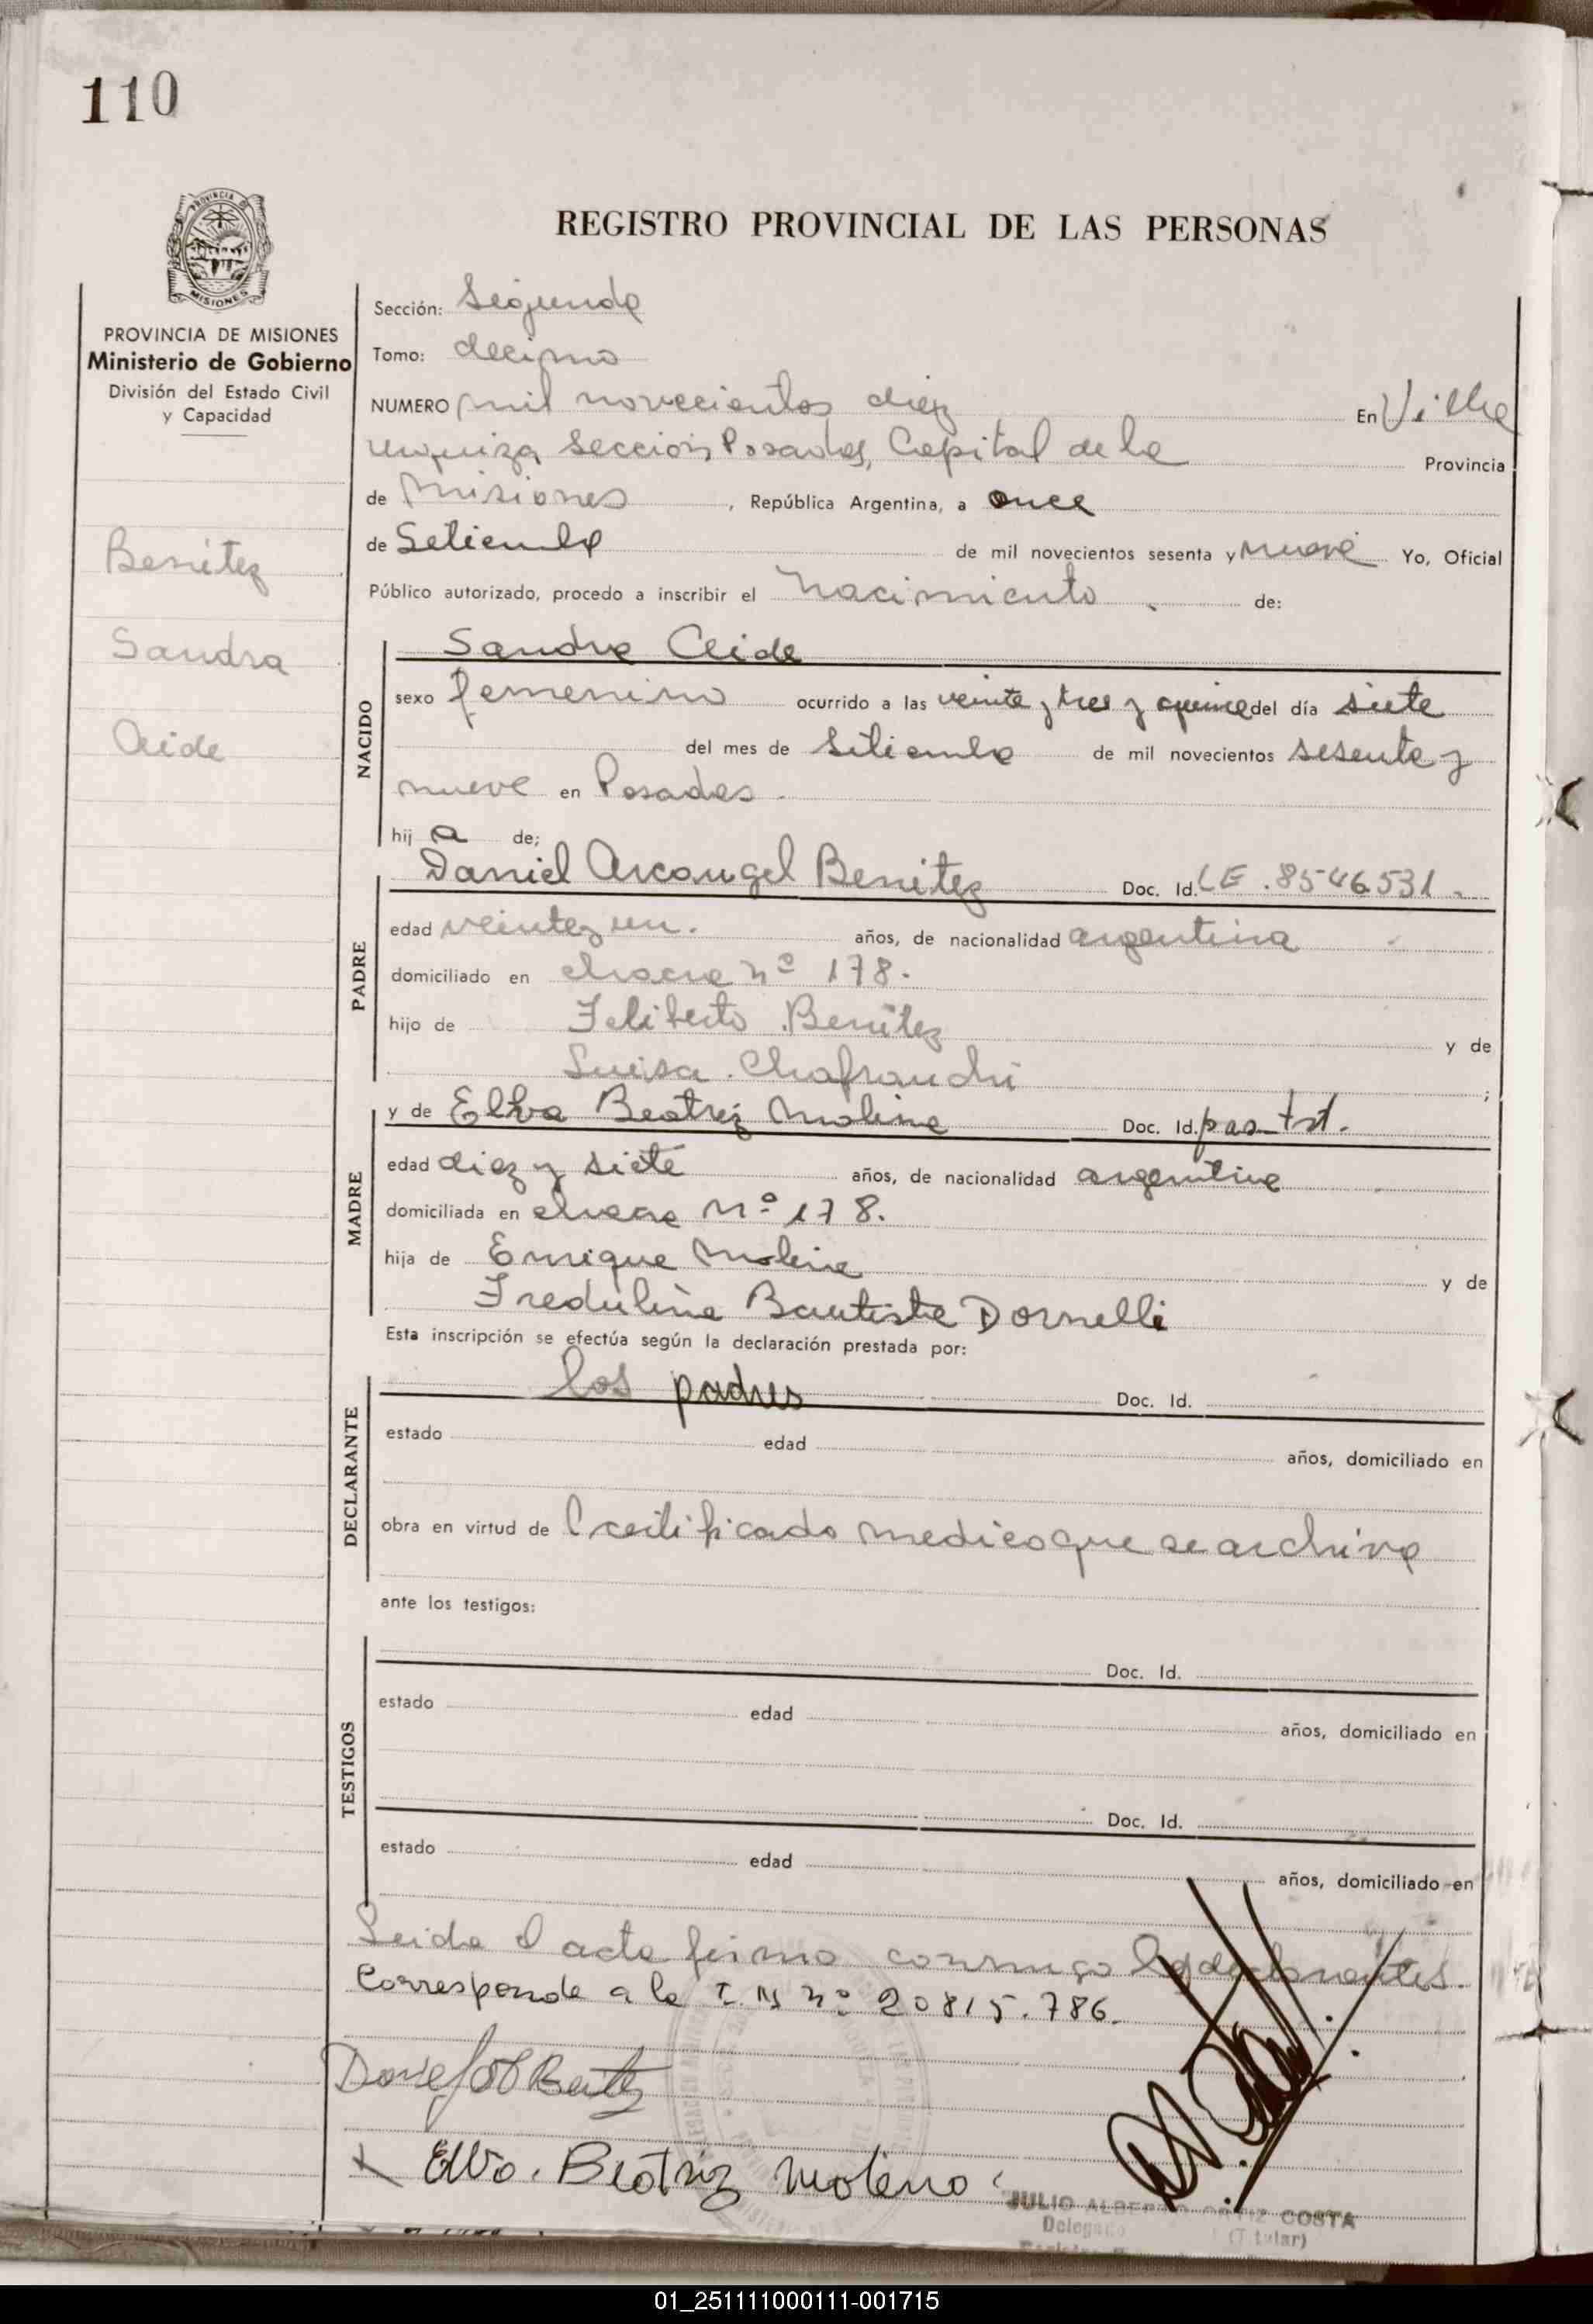 110
PROVINCIA DE MISIONES
REGISTRO PROVINCIAL DE LAS PERSONAS
PROVINCIA DE MISIONES
Ministerio de Gobierno
División del Estado Civil
y Capacidad
Benítez
Sandra
Aide
Sección: Segunda
Tomo: decimo
NUMERO mil novecientos diez En Villa
urquiza seccion Posadas, Capital de la Provincia
de Misiones, República Argentina, a once
de Setiembre de mil novecientos sesenta y nueve Yo, Oficial
Público autorizado, procedo a inscribir el nacimiento de:
NACIDO
Sandra Aide
sexo femenino ocurrido a las veinte y tres y quince del día siete
del mes de Setiembre de mil novecientos sesenta y
nueve en Posadas
hij a de;
PADRE
Daniel Arcangel Benitez Doc. Id. LE. 8546531
edad veinte y un. años, de nacionalidad argentina
domiciliado en chacra nº 178.
hijo de Feliberto Benitez y de
Luisa
MADRE
y de Elba Beatriz Molina Doc. Id.
edad diez y siete años, de nacionalidad argentina
domiciliada en chacra Nº 178.
hija de Enrique Molina y de
Fredulina Bautista Dornelli
Esta inscripción se efectúa según la declaración prestada por:
DECLARANTE
los padres Doc. Id.
estado edad años, domiciliado en
obra en virtud de certificado medico que se archiva
ante los testigos:
TESTIGOS
Doc. Id.
estado edad años, domiciliado en
Doc. Id.
estado edad años, domiciliado en
Leida el acta firma conmigo los declarantes.
Corresponde a la nº 20815.786.
Elva. Beatriz Molina
JULIO ALBERTO COSTA
Delegado (Titular)
01_251111000111-001715